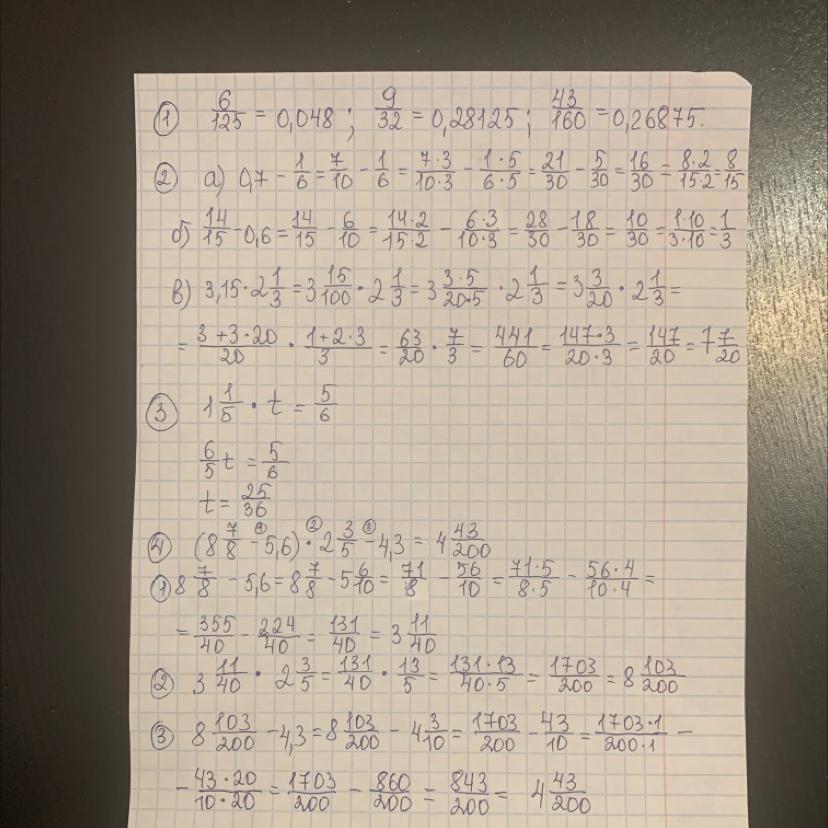 ① 6/125 = 0,048 ; 9/32 = 0,28125 ; 43/160 = 0,26875.
② а) 0,7 - 1/6 = 7/10 - 1/6 = 7·3/10·3 - 1·5/6·5 = 21/30 - 5/30 = 16/30 = 8·2/15·2 = 8/15
б) 14/15 - 0,6 = 14/15 - 6/10 = 14·2/15·2 - 6·3/10·3 = 28/30 - 18/30 = 10/30 = 1·10/3·10 = 1/3
в) 3,15 · 2 1/3 = 3 15/100 · 2 1/3 = 3 3·5/20·5 · 2 1/3 = 3 3/20 · 2 1/3 =
= 3+3·20/20 · 1+2·3/3 = 63/20 · 7/3 = 441/60 = 147·3/20·3 = 147/20 = 7 7/20
③ 1 1/5 · t = 5/6
6/5 t = 5/6
t = 25/36
④ (8 7/8 -① 5,6) ·② 2 3/5 -③ 4,3 = 4 43/200
① 8 7/8 - 5,6 = 8 7/8 - 5 6/10 = 71/8 - 56/10 = 71·5/8·5 - 56·4/10·4 =
= 355/40 - 224/40 = 131/40 = 3 11/40
② 3 11/40 · 2 3/5 = 131/40 · 13/5 = 131·13/40·5 = 1703/200 = 8 103/200
③ 8 103/200 - 4,3 = 8 103/200 - 4 3/10 = 1703/200 - 43/10 = 1703·1/200·1 -
- 43·20/10·20 = 1703/200 - 860/200 = 843/200 = 4 43/200